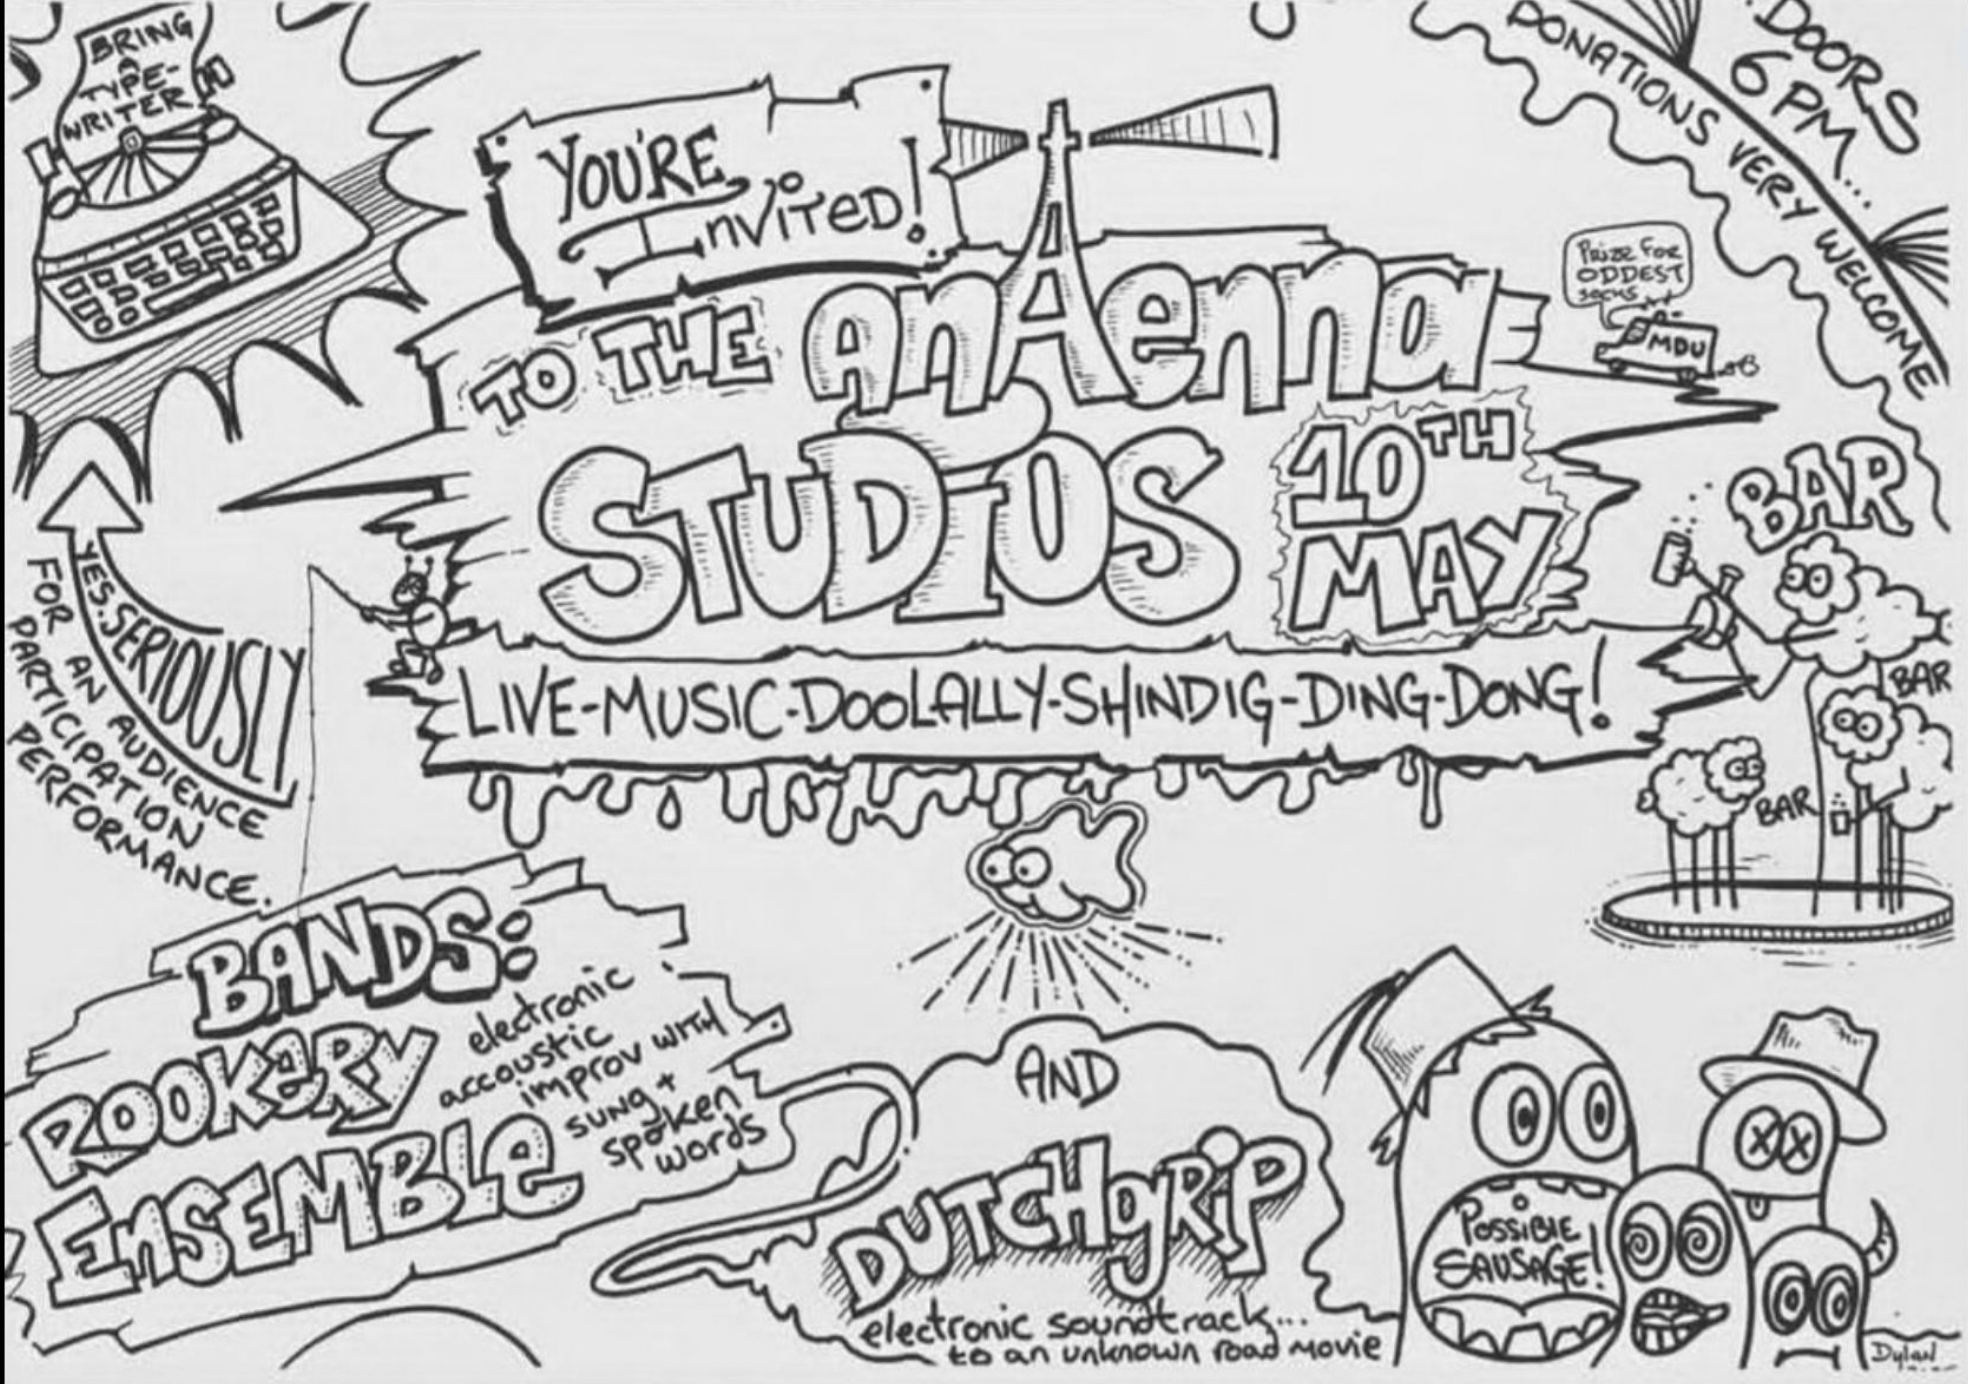 BRING
A
TYPE-
WRITER
YES. SERIOUSLY
FOR AN AUDIENCE
PARTICIPATION
PERFORMANCE.
YOU'RE
INVITED!
TO THE anAenna
STUDIOS
10TH
MAY
LIVE-MUSIC-DOOLALLY-SHINDIG-DING-DONG!
..DOORS
6PM...
DONATIONS VERY WELCOME
PRIZE FOR
ODDEST
SOCKS
MDU
BAR
BAR
BAR
BANDS:
ROOKERY
ENSEMBLE
electronic
accoustic
improv WITH
sung +
spoken
words
AND
DUTCHgRiP
electronic soundtrack...
to an unknown road movie
POSSIBLE
SAUSAGE!
Dylan